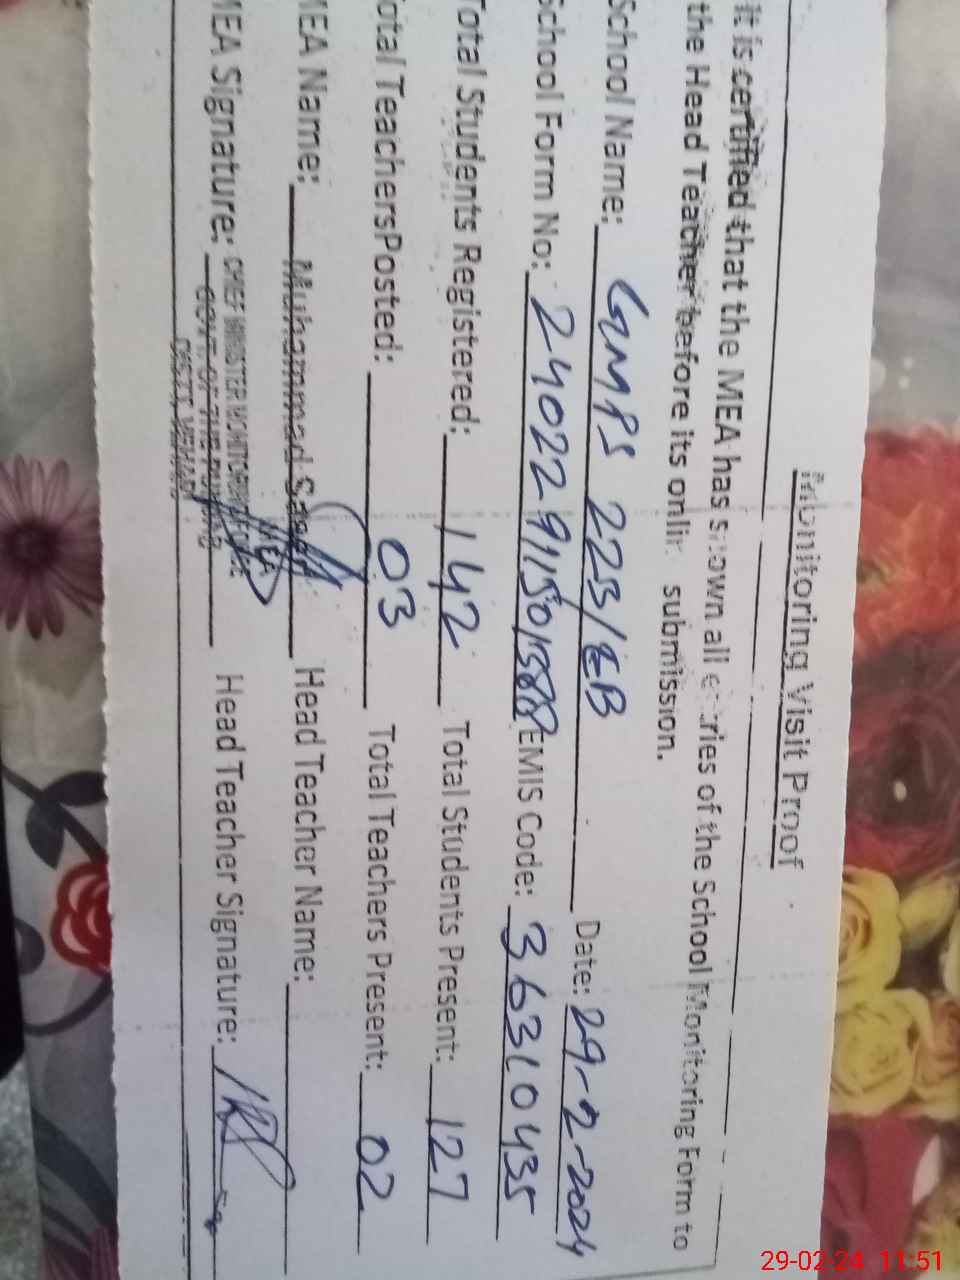 Monitoring Visit Proof
It is certified that the MEA has shown all entries of the School Monitoring Form to
the Head Teacher before its online submission.
School Name: GMPS 223/EB Date: 29-2-2024
School Form No: EMIS Code: 36310435
Total Students Registered: 142 Total Students Present: 127
Total TeachersPosted: 03 Total Teachers Present: 02
MEA Name: Muhammad Head Teacher Name:
MEA Signature: Head Teacher Signature:
CHIEF MINISTER MONITORING FORCE
GOVT. OF THE PUNJAB
DISTT. VEHARI
MEA
29-02-24 11:51